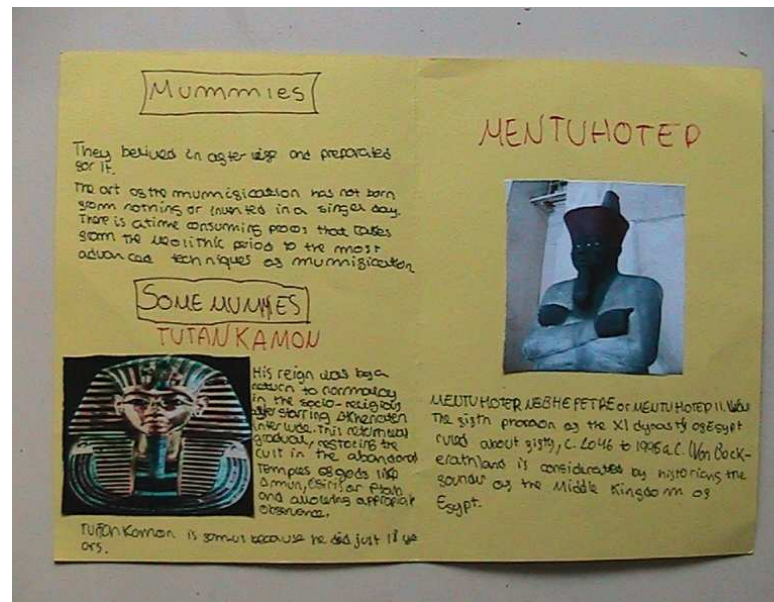 Mummies
They belived in agter lige and preparated
gor it.
The art og the mummigication has not born
grom nothing or invented in a singel day.
There is a time consuming proces that takes
grom the Neolithic period to the most
advanced techniques og mummigication
SOME MUMMIES
TUTANKAMON
His reign was by a
return to normalcy
in the socio-religious
after starring Akhenaten
interlude. This return was
gradual, restoring the
cult in the abandoned
temples og gods like
Amun, Osiris or Ptah
and allowing appropiate
observance.
TUTANKamon is gamous because he died just 18 ye
ars.
MENTUHOTEP
MENTUHOTEP NEBHEPETRE or MENTUHOTEP II. Was
The sixth pharaon og the XI dynasty og Egypt
ruled about gigty, c. 2046 to 1995 a.C. (Von Beck-
erath) and is considerated by historians the
gounder og the Middle Kingdom og
Egypt.